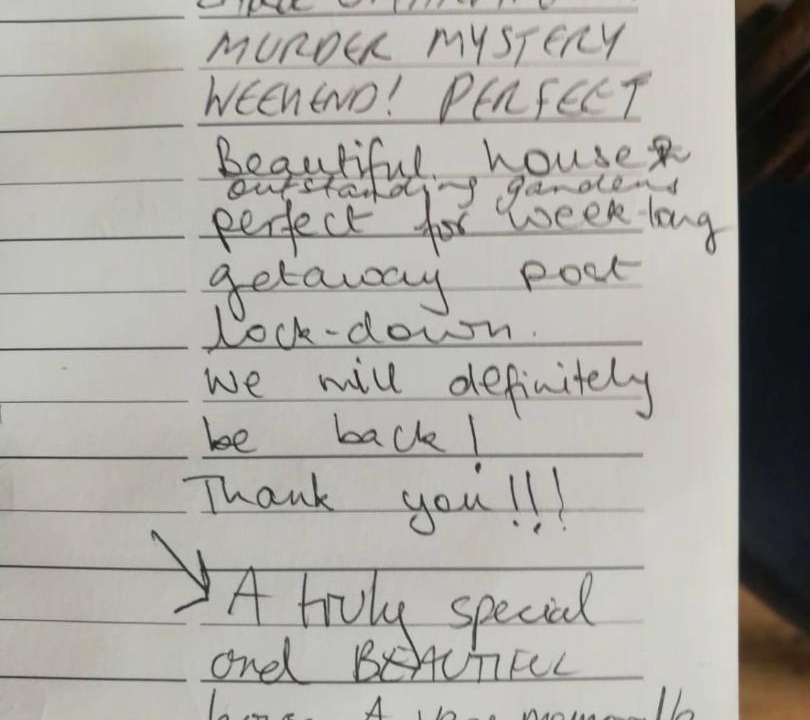 MURDER MYSTERY
WEEKEND! PERFECT
Beautiful house &
outstanding gardens
perfect for week-long
getaway post
lock-down.
We will definitely
be back!
Thank you!!!
A truly special
and BEAUTIFUL